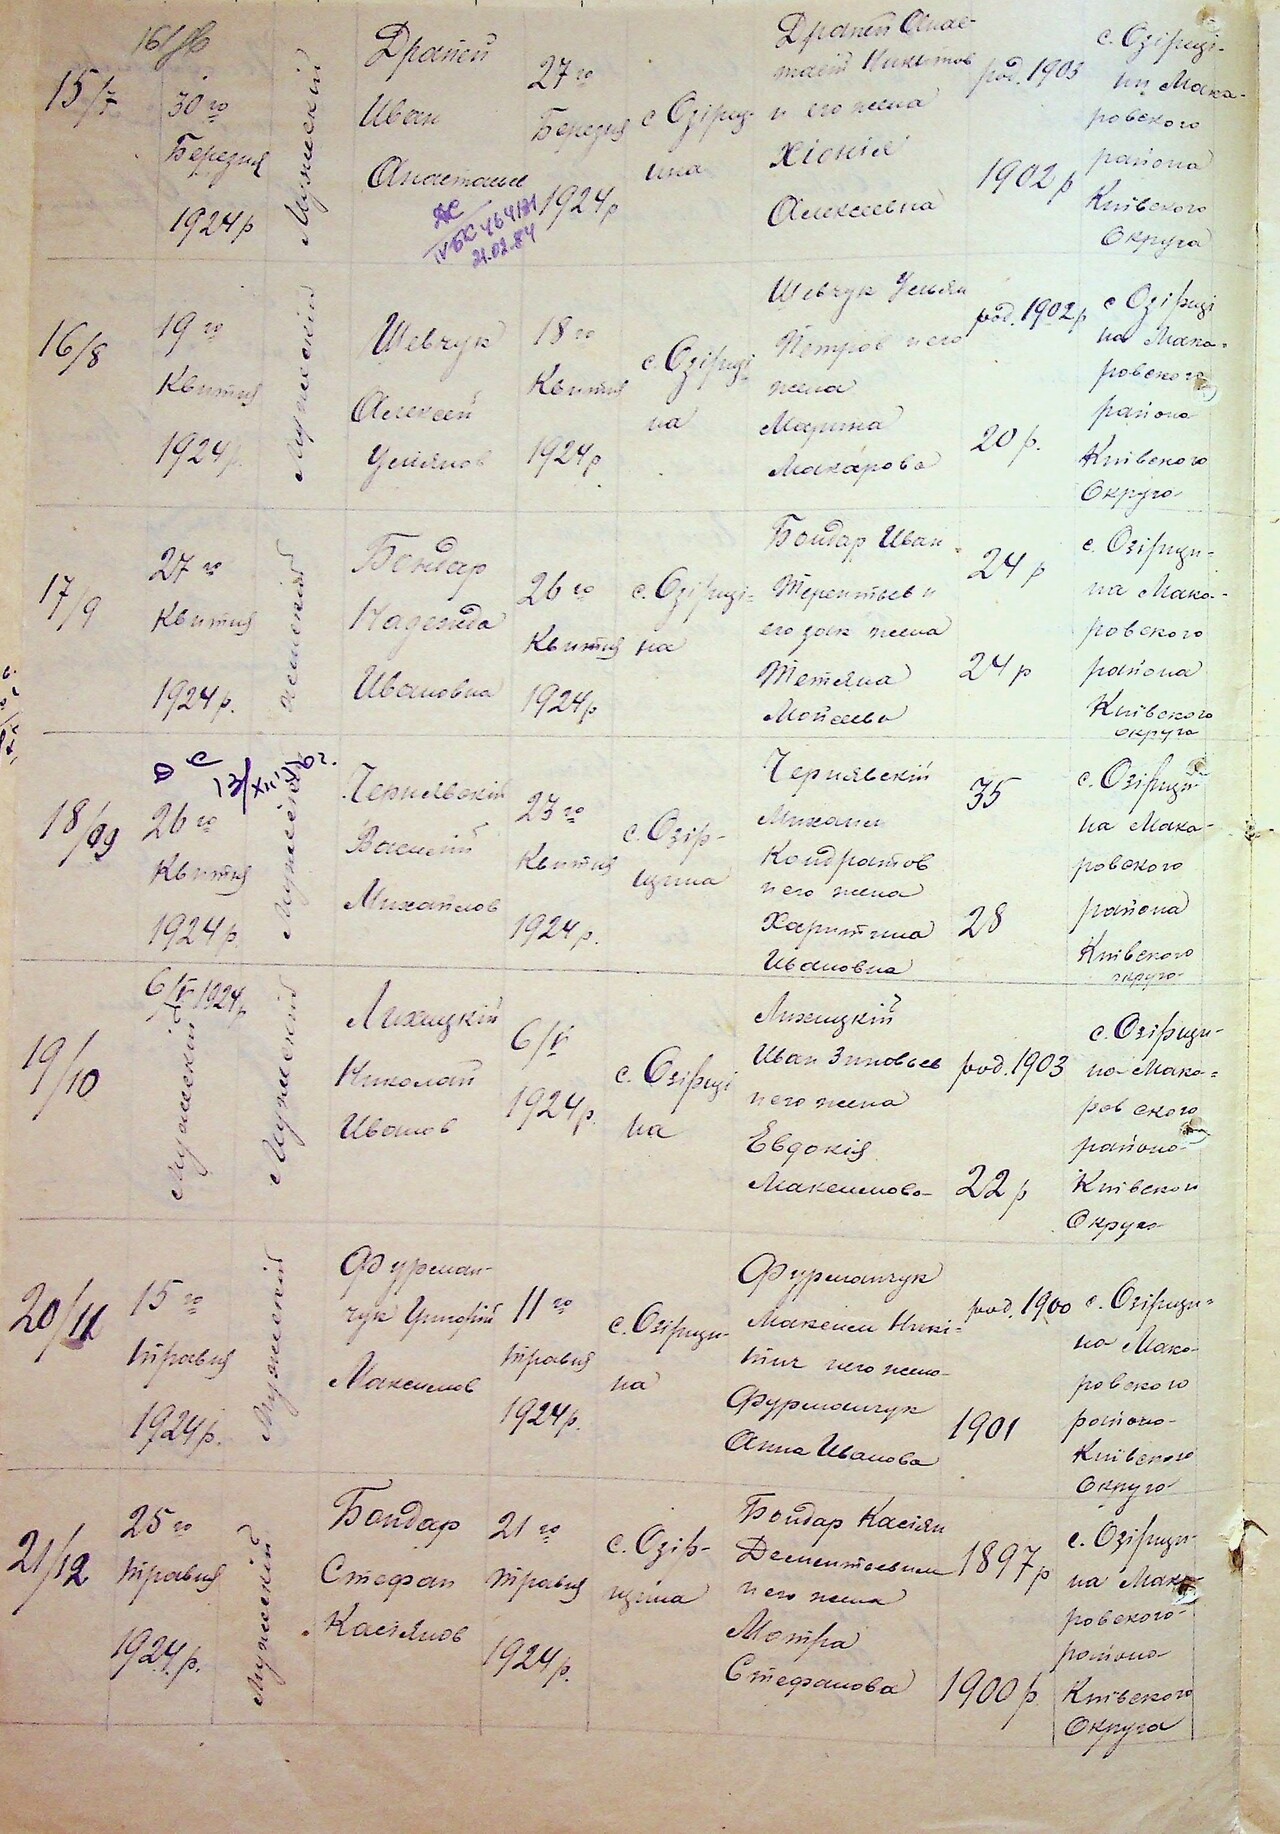 15/7
30 го
Березня
1924 р
Мужескій
Драпей
Иван
27 го
Березня
1924 р
с Озірщи-
на
и его жена
Хіонія
Алексеевна
род. 1903
1902 р
с. Озірщи-
на Мака-
ровского
района
Київского
Округа
21.02.84
16/8
19 го
Квитня
1924 р.
Мужескій
Шевчук
Алексей
Ульянов
18 го
Квитня
1924 р
с. Озірщі
на
Шевчук Ульян
Петров и его
жена
Марина
Макарова
род. 1902 р
20 р.
с Озірщі
на Мака-
ровского
района
Київского
Округа
17/9
27 го
Квитня
1924 р.
женскій
Бондар
Надежда
Ивановна
26 го
Квитня
1924 р
с. Озірщі-
на
Бондар Иван
Терентьев и
его зак жена
Тетяна
Мойсеева
24 р
24 р
с. Озірщи-
на Мака-
ровского
района
Київского
округа
13/XII 76 г.
18/99
26 го
Квитня
1924 р.
Мужескій
Чернявскій
Василій
Михайлов
23 го
Квитня
1924 р.
с. Озір-
щина
Чернявскій
Михаил
Кондратов
и его жена
Харитина
Ивановна
35
28
с. Озірщи-
на Мака-
ровского
района
Київского
округа
19/10
6/V 1924 р
Мужескій
Мужескій
Лихицкій
Николай
Иванов
6/V
1924 р.
с. Озірщі
на
Лихицкій
Иван Зиновьев
и его жена
Евдокія
Максимова
род. 1903
22 р
с. Озірщи-
на Мака-
ровского
района
Київского
Округа
20/11
15 го
травня
1924 р.
Мужескій
Фурман-
чук
Максимов
11 го
травня
1924 р.
с. Озірщи-
на
Фурманчук
Максим Никі-
тич и его жена
Фурманчук
Анна Иванова
род. 1900
1901
с. Озірщи-
на Мака-
ровского
района
Київского
Округа
21/12
25 го
травня
1924 р.
Мужескій
Бондар
Стефан
Касіянов
21 го
травня
1924 р.
с. Озір-
щина
Бондар Касіян
Дементьевич
и его жена
Мотра
Стефанова
1897 р
1900 р.
с. Озірщи-
на Мака-
ровского
района
Київского
Округа